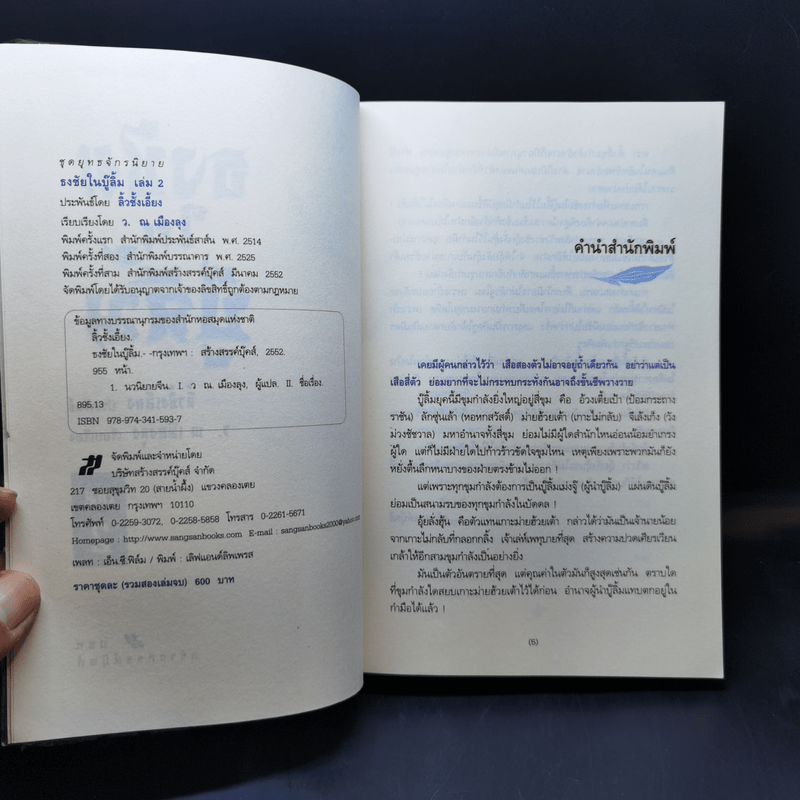 ชุดยุทธจักรนิยาย
ธงชัยในบู๊ลิ้ม เล่ม 2
ประพันธ์โดย ลิ้วชั้งเอี้ยง
เรียบเรียงโดย ว. ณ เมืองลุง
พิมพ์ครั้งแรก สำนักพิมพ์ประพันธ์สาส์น พ.ศ. 2514
พิมพ์ครั้งที่สอง สำนักพิมพ์บรรณาคาร พ.ศ. 2525
พิมพ์ครั้งที่สาม สำนักพิมพ์สร้างสรรค์บุ๊คส์ มีนาคม 2552
จัดพิมพ์โดยได้รับอนุญาตจากเจ้าของลิขสิทธิ์ถูกต้องตามกฎหมาย
ข้อมูลทางบรรณานุกรมของสำนักหอสมุดแห่งชาติ
ลิ้วชั้งเอี้ยง.
ธงชัยในบู๊ลิ้ม.- -กรุงเทพฯ : สร้างสรรค์บุ๊คส์, 2552.
955 หน้า.
1. นวนิยายจีน. I. ว ณ เมืองลุง, ผู้แปล. II. ชื่อเรื่อง.
895.13
ISBN 978-974-341-593-7
จัดพิมพ์และจำหน่ายโดย
บริษัทสร้างสรรค์บุ๊คส์ จำกัด
217 ซอยสุขุมวิท 20 (สายน้ำผึ้ง) แขวงคลองเตย
เขตคลองเตย กรุงเทพฯ 10110
โทรศัพท์ 0-2259-3072, 0-2258-5858 โทรสาร 0-2261-5671
Homepage : http://www.sangsanbooks.com E-mail : sangsanbooks2000@yahoo.com
เพลท : เอ็น.ซี.ฟิล์ม / พิมพ์ : เลิฟแอนด์ลิพเพรส
ราคาชุดละ (รวมสองเล่มจบ) 600 บาท
คำนำสำนักพิมพ์
เคยมีผู้คนกล่าวไว้ว่า เสือสองตัวไม่อาจอยู่ถ้ำเดียวกัน อย่าว่าแต่เป็น
เสือสี่ตัว ย่อมยากที่จะไม่กระทบกระทั่งกันอาจถึงขั้นชีพวางวาย
บู๊ลิ้มยุคนี้มีขุมกำลังยิ่งใหญ่อยู่สี่ขุม คือ อ้วงเตี้ยเป้า (ป้อมกระถาง
ราชัน) ลักซุ่นเล้า (หอหกสวัสดิ์) ม่ายฮ้วยเต้า (เกาะไม่กลับ) จีเล้งเก็ง (วัง
ม่วงชัชวาล) มหาอำนาจทั้งสี่ขุม ย่อมไม่มีผู้ใดสำนักไหนอ่อนน้อมยำเกรง
ผู้ใด แต่ก็ไม่มีฝ่ายใดไปก้าวร้าวขัดใจขุมไหน เหตุเพียงเพราะพวกมันก็ยัง
หยั่งตื้นลึกหนาบางของฝ่ายตรงข้ามไม่ออก !
แต่เพราะทุกขุมกำลังต้องการเป็นบู๊ลิ้มเม่งจู๊ (ผู้นำบู๊ลิ้ม) แผ่นดินบู๊ลิ้ม
ย่อมเป็นสนามรบของทุกขุมกำลังในบัดดล !
อุ้ยลั่งฮุ้น คือตัวแทนเกาะม่ายฮ้วยเต้า กล่าวได้ว่ามันเป็นเจ้านายน้อย
จากเกาะไม่กลับที่กลอกกลิ้ง เจ้าเล่ห์เพทุบายที่สุด สร้างความปวดเศียรเวียน
เกล้าให้อีกสามขุมกำลังเป็นอย่างยิ่ง
มันเป็นตัวอันตรายที่สุด แต่คุณค่าในตัวมันก็สูงสุดเช่นกัน ตราบใด
ที่ขุมกำลังใดสยบเกาะม่ายฮ้วยเต้าไว้ได้ก่อน อำนาจผู้นำบู๊ลิ้มแทบตกอยู่ใน
กำมือได้แล้ว !
(5)